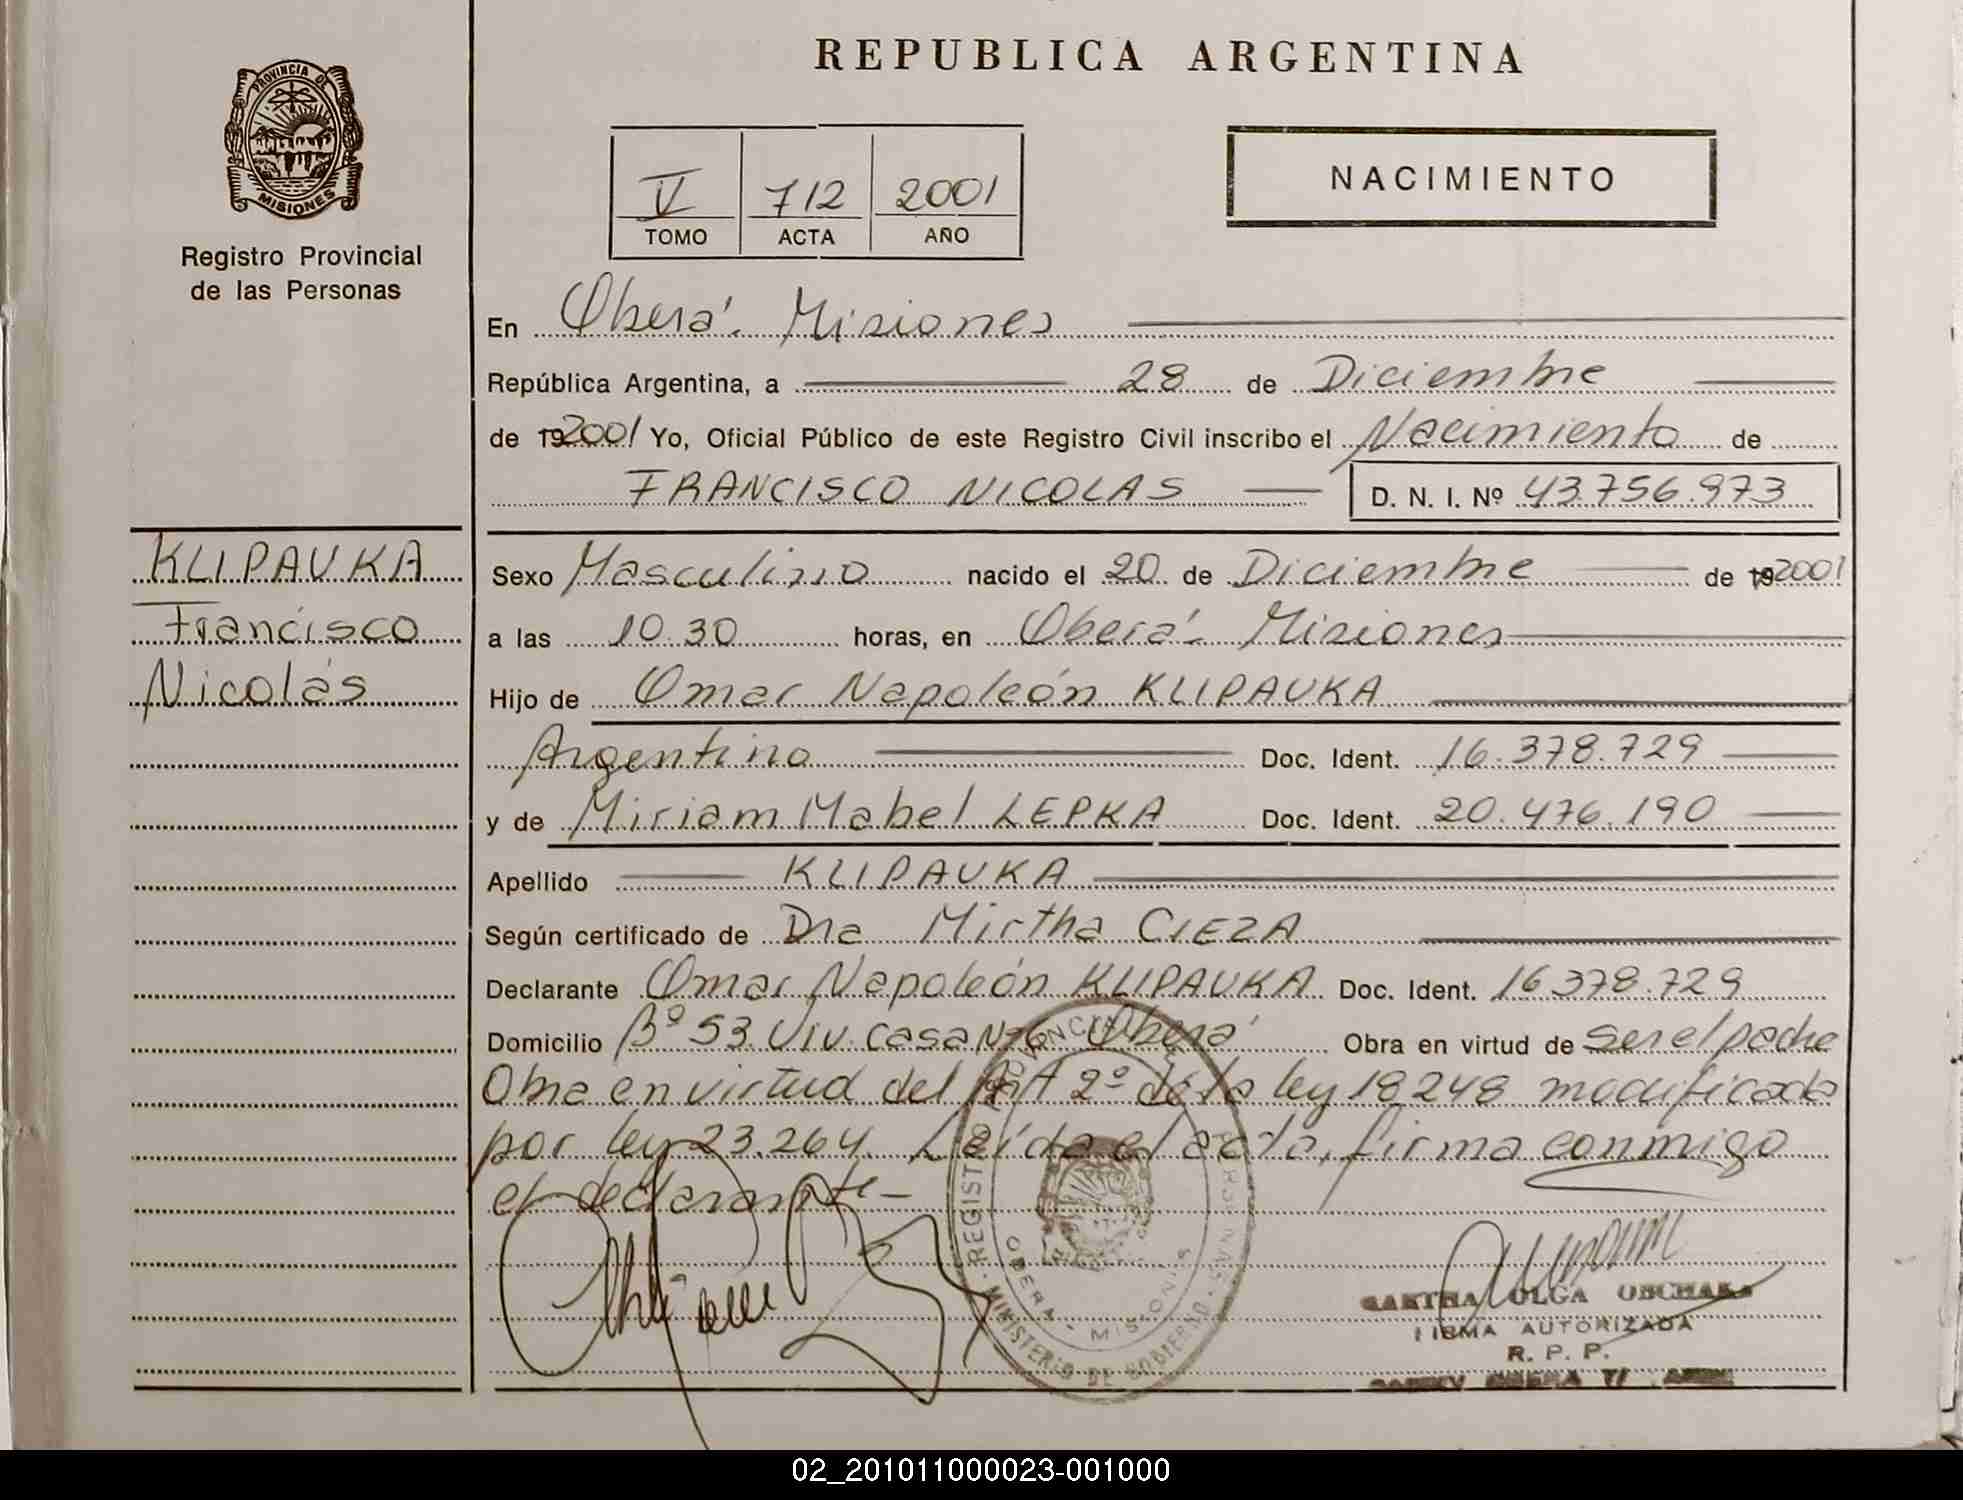 REPUBLICA ARGENTINA
PROVINCIA DE
MISIONES
Registro Provincial
de las Personas
V 712 2001
TOMO ACTA AÑO
NACIMIENTO
En Oberá. Misiones
República Argentina, a 28 de Diciembre
de 192001 Yo, Oficial Público de este Registro Civil inscribo el Nacimiento de
FRANCISCO NICOLAS D. N. I. Nº 43.756.973
KLIPAUKA
Francisco
Nicolás
Sexo Masculino nacido el 20 de Diciembre de 192001
a las 10.30 horas, en Oberá. Misiones
Hijo de Omar Napoleón KLIPAUKA
Argentino Doc. Ident. 16.378.729
y de Miriam Mabel LEPKA Doc. Ident. 20.476.190
Apellido KLIPAUKA
Según certificado de Dra Mirtha CIEZA
Declarante Omar Napoleón KLIPAUKA Doc. Ident. 16378.729
Domicilio Bº 53 Viv. casa Oberá Obra en virtud de ser el padre
Obra en virtud del Art 2º de la ley 18248 modificada
por ley 23.264. Leída el acta, firma conmigo
el declarante-
REGISTRO PROVINCIAL PERSONAS
OBERA - MISIONES
MINISTERIO DE GOBIERNO
OLGA
FIRMA AUTORIZADA
R. P. P.
02_201011000023-001000